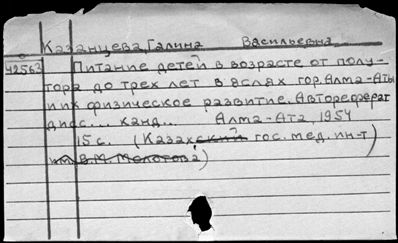 Казанцева, Галина Васильевна
42563 Питание детей в возрасте от полу-
тора до трех лет в яслях гор. Алма-Аты
и их физическое развитие. Автореферат
дисс... канд... Алма-Ата, 1954
15 с. (Казахский гос. мед. ин-т
им. В.М. Молотова)